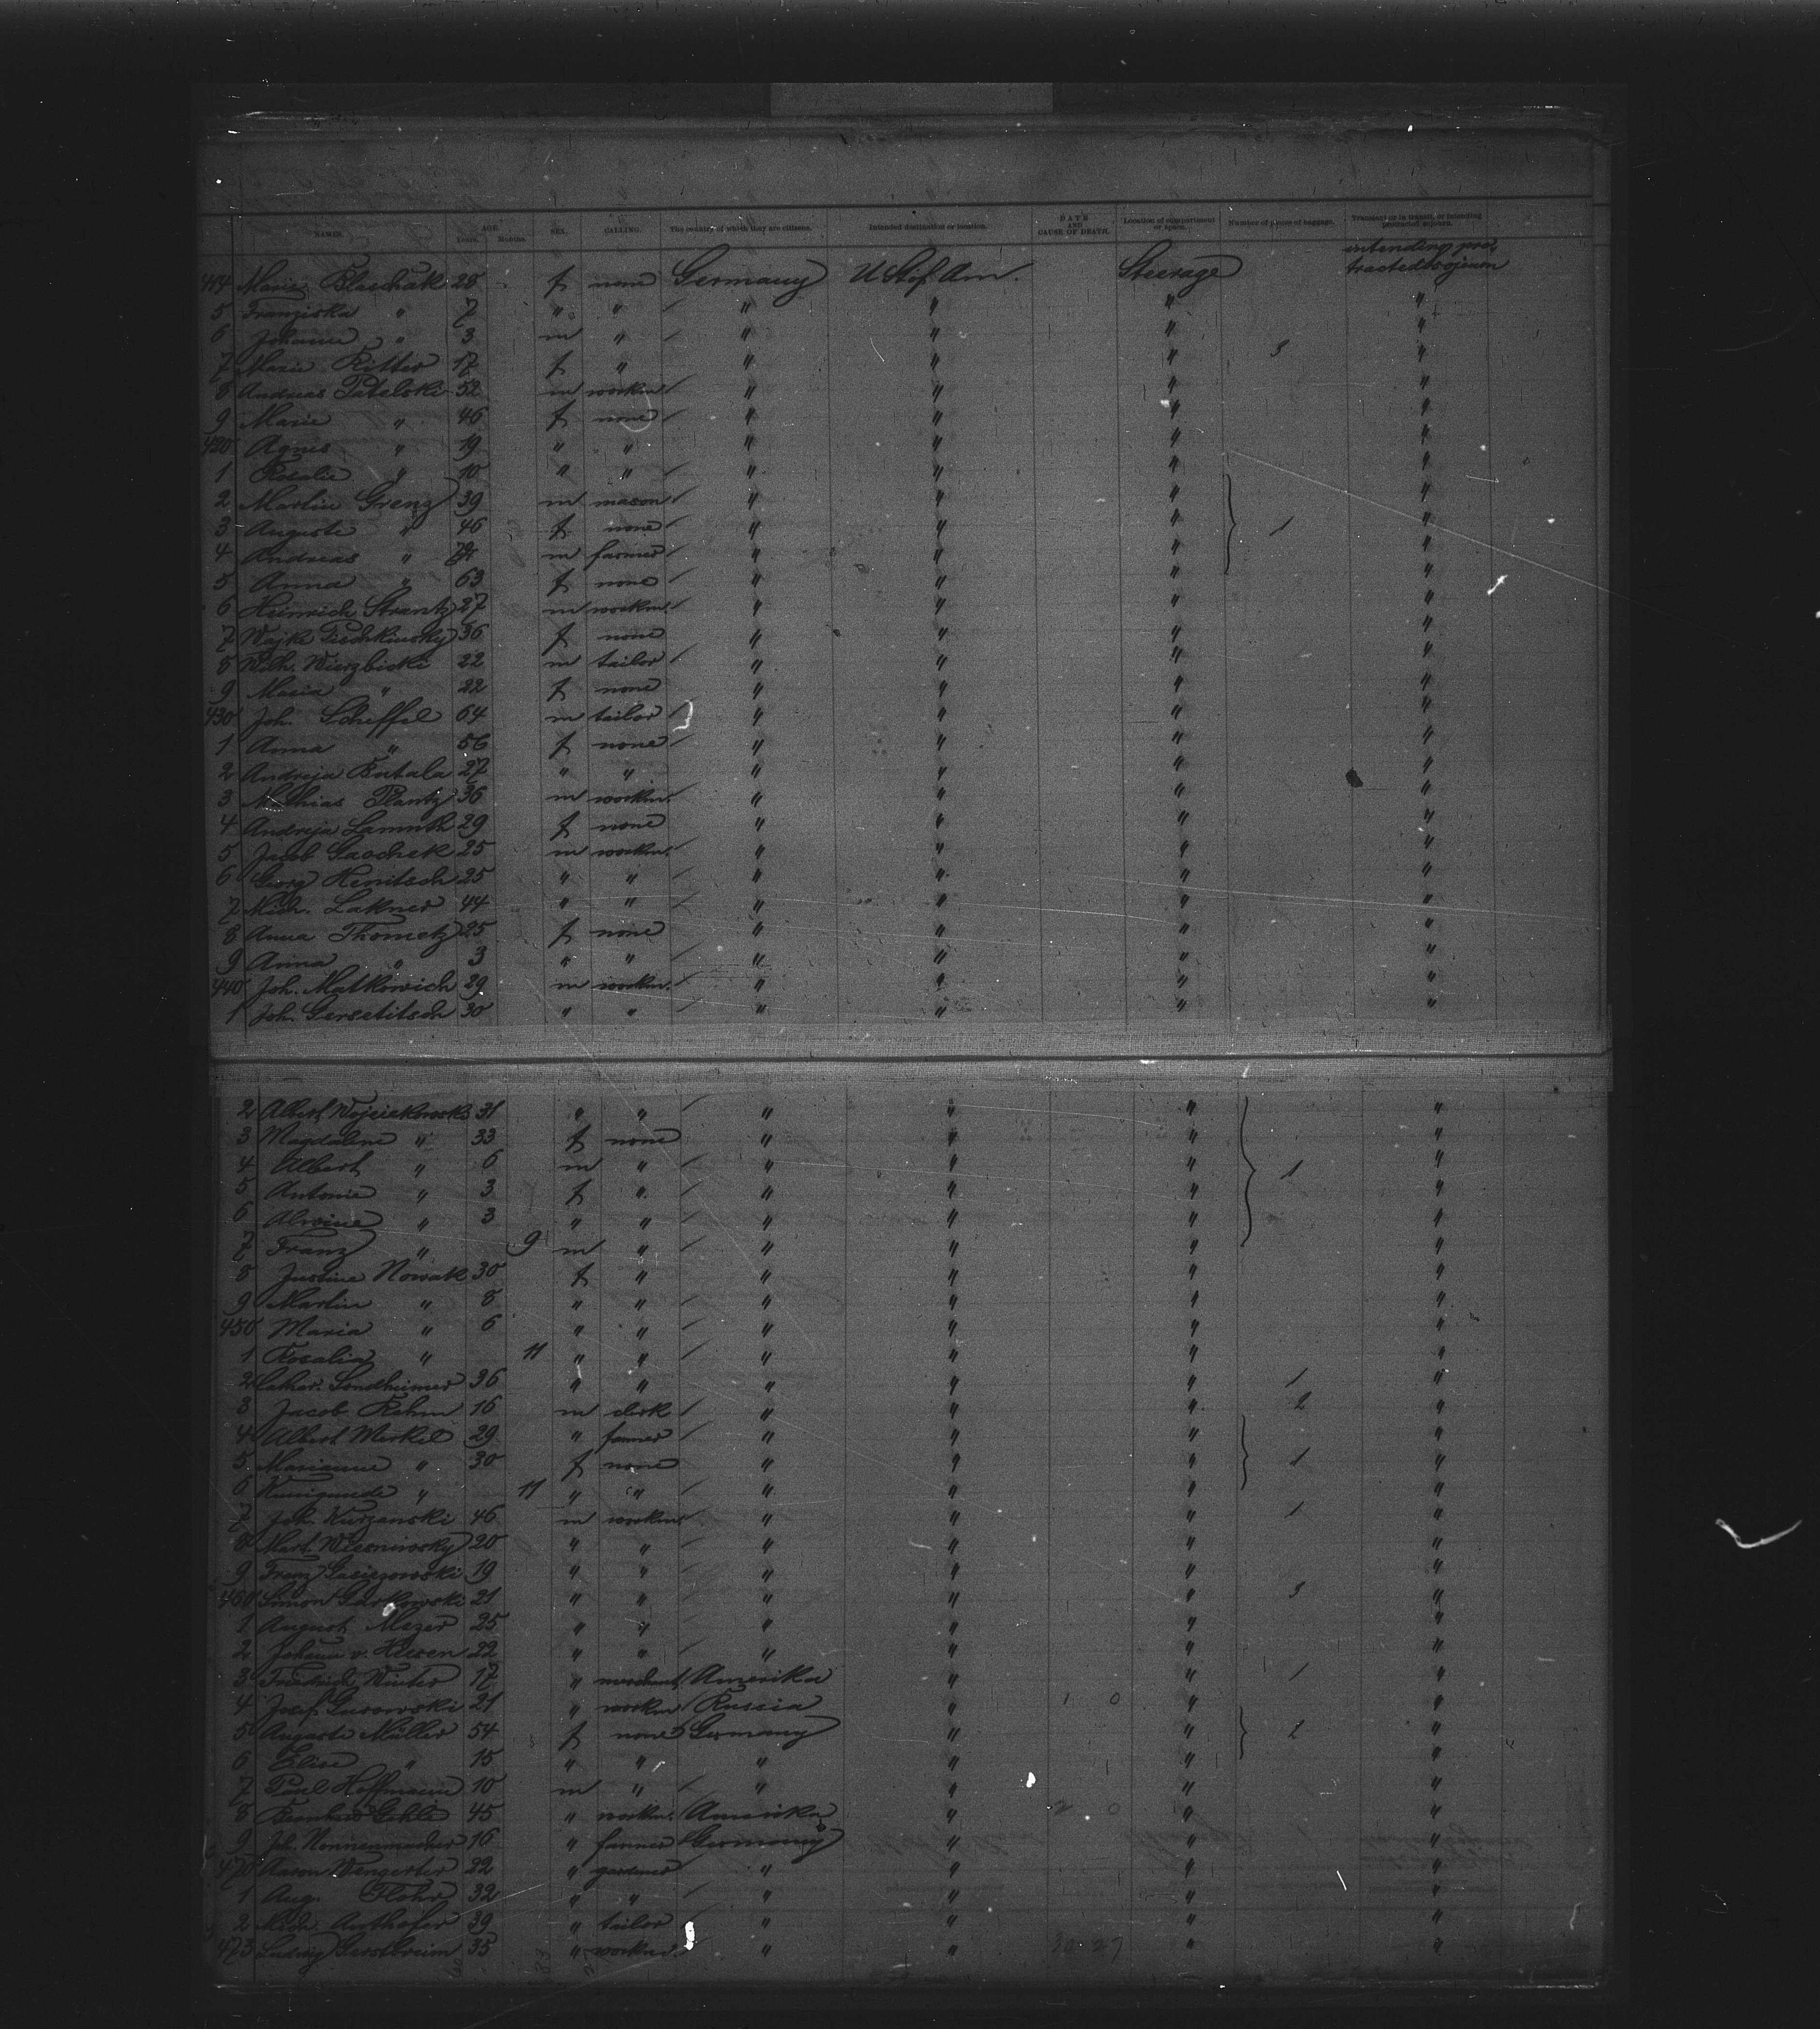 NAMES. AGE. Years. Months. SEX. CALLING. The country of which they are citizens. Intended destination or location. DATE AND CAUSE OF DEATH. Location of compartment or space. Number of pieces of baggage. Transient or in transit, or intending protracted sojourn.
414 Marie Blaschak 28 f none Germany U St of Am. Steerage intending protracted sojourn
5 Franziska " 7 " " " " " "
6 Johann " 3 m " " " " "
7 Marie Ritter 17 f " " " " 3 "
8 Andreas Patelski 52 m workm. " " " "
9 Marie " 46 f none " " " "
420 Agnes " 19 " " " " " "
1 Rosalie " 10 " " " " " "
2 Martin Grenz 39 m mason " " " "
3 Auguste " 46 f none " " " 1 "
4 Andreas " m farmer " " " "
5 Anna " 63 f none " " " "
6 Heinrich Strantz 27 m workm. " " " "
7 36 f none " " " "
8 Wilh. Wierzbicki 22 m tailor " " " "
9 Maria " 22 f none " " " "
430 Joh. Scheffel 64 m tailor " " " "
1 Anna " 56 f none " " " "
2 Andreja Butala 27 " " " " " "
3 Mathias Plantz 36 m workm. " " " "
4 Andreja Lamuth 29 f none " " " "
5 Jacob 25 m workm. " " " "
6 Georg Henitsch 25 " " " " " "
7 Mich. Lakner 44 " " " " " "
8 Anna Thometz 25 f none " " " "
9 Anna " 3 " " " " " "
440 Joh. Matkowich 29 m workm. " " " "
1 Joh. Gersetitsch 30 " " " " " "
2 Albert Wojciakowski 31 " " " " " "
3 Magdalene " 33 f none " " " "
4 Albert " 6 m " " " " 1 "
5 Antonie " 3 f " " " " "
6 Alwine " 3 " " " " " "
7 Franz " 9 m " " " " "
8 Justine Nowak 30 f " " " " "
9 Martin " 8 " " " " " "
450 Maria " 6 " " " " " "
1 Rosalia " 11 " " " " " "
2 Cathar. Sondheimer 36 " " " " " 1 "
3 Jacob Rehm 16 m clerk " " " 2 "
4 Albert Merkel 29 " farmer " " " "
5 Marianne " 30 f none " " " 1 "
6 Kunigunde " 11 " " " " " "
7 Joh. Kurzanski 46 m workm. " " " 1 "
8 Mart. Wisniewsky 20 " " " " " "
9 Franz 19 " " " " " "
460 Simon 21 " " " " " 3 "
1 August Mezer 25 " " " " " "
2 Johann v. 22 " " " " " "
3 Friedrich Winter 17 " merchant Amerika " " 1 "
4 Josef Gurowski 21 " workm Russia " 1 0 " "
5 Auguste Müller 54 f none Germany " " 2 "
6 Elise " 15 " " " " " "
7 Paul Hoffmann 10 m " " " " "
8 Bernhard 45 " workm. Amerika " 2 0 " "
9 Joh. Nonnenmacher 16 " farmer Germany " " "
470 Aaron Wengerter 22 " gardener " " " "
1 Aug. Flohr 32 " " " " " "
2 Mich. Anthofer 39 " tailor " " " "
473 Ludwig 35 " workm. " " " "